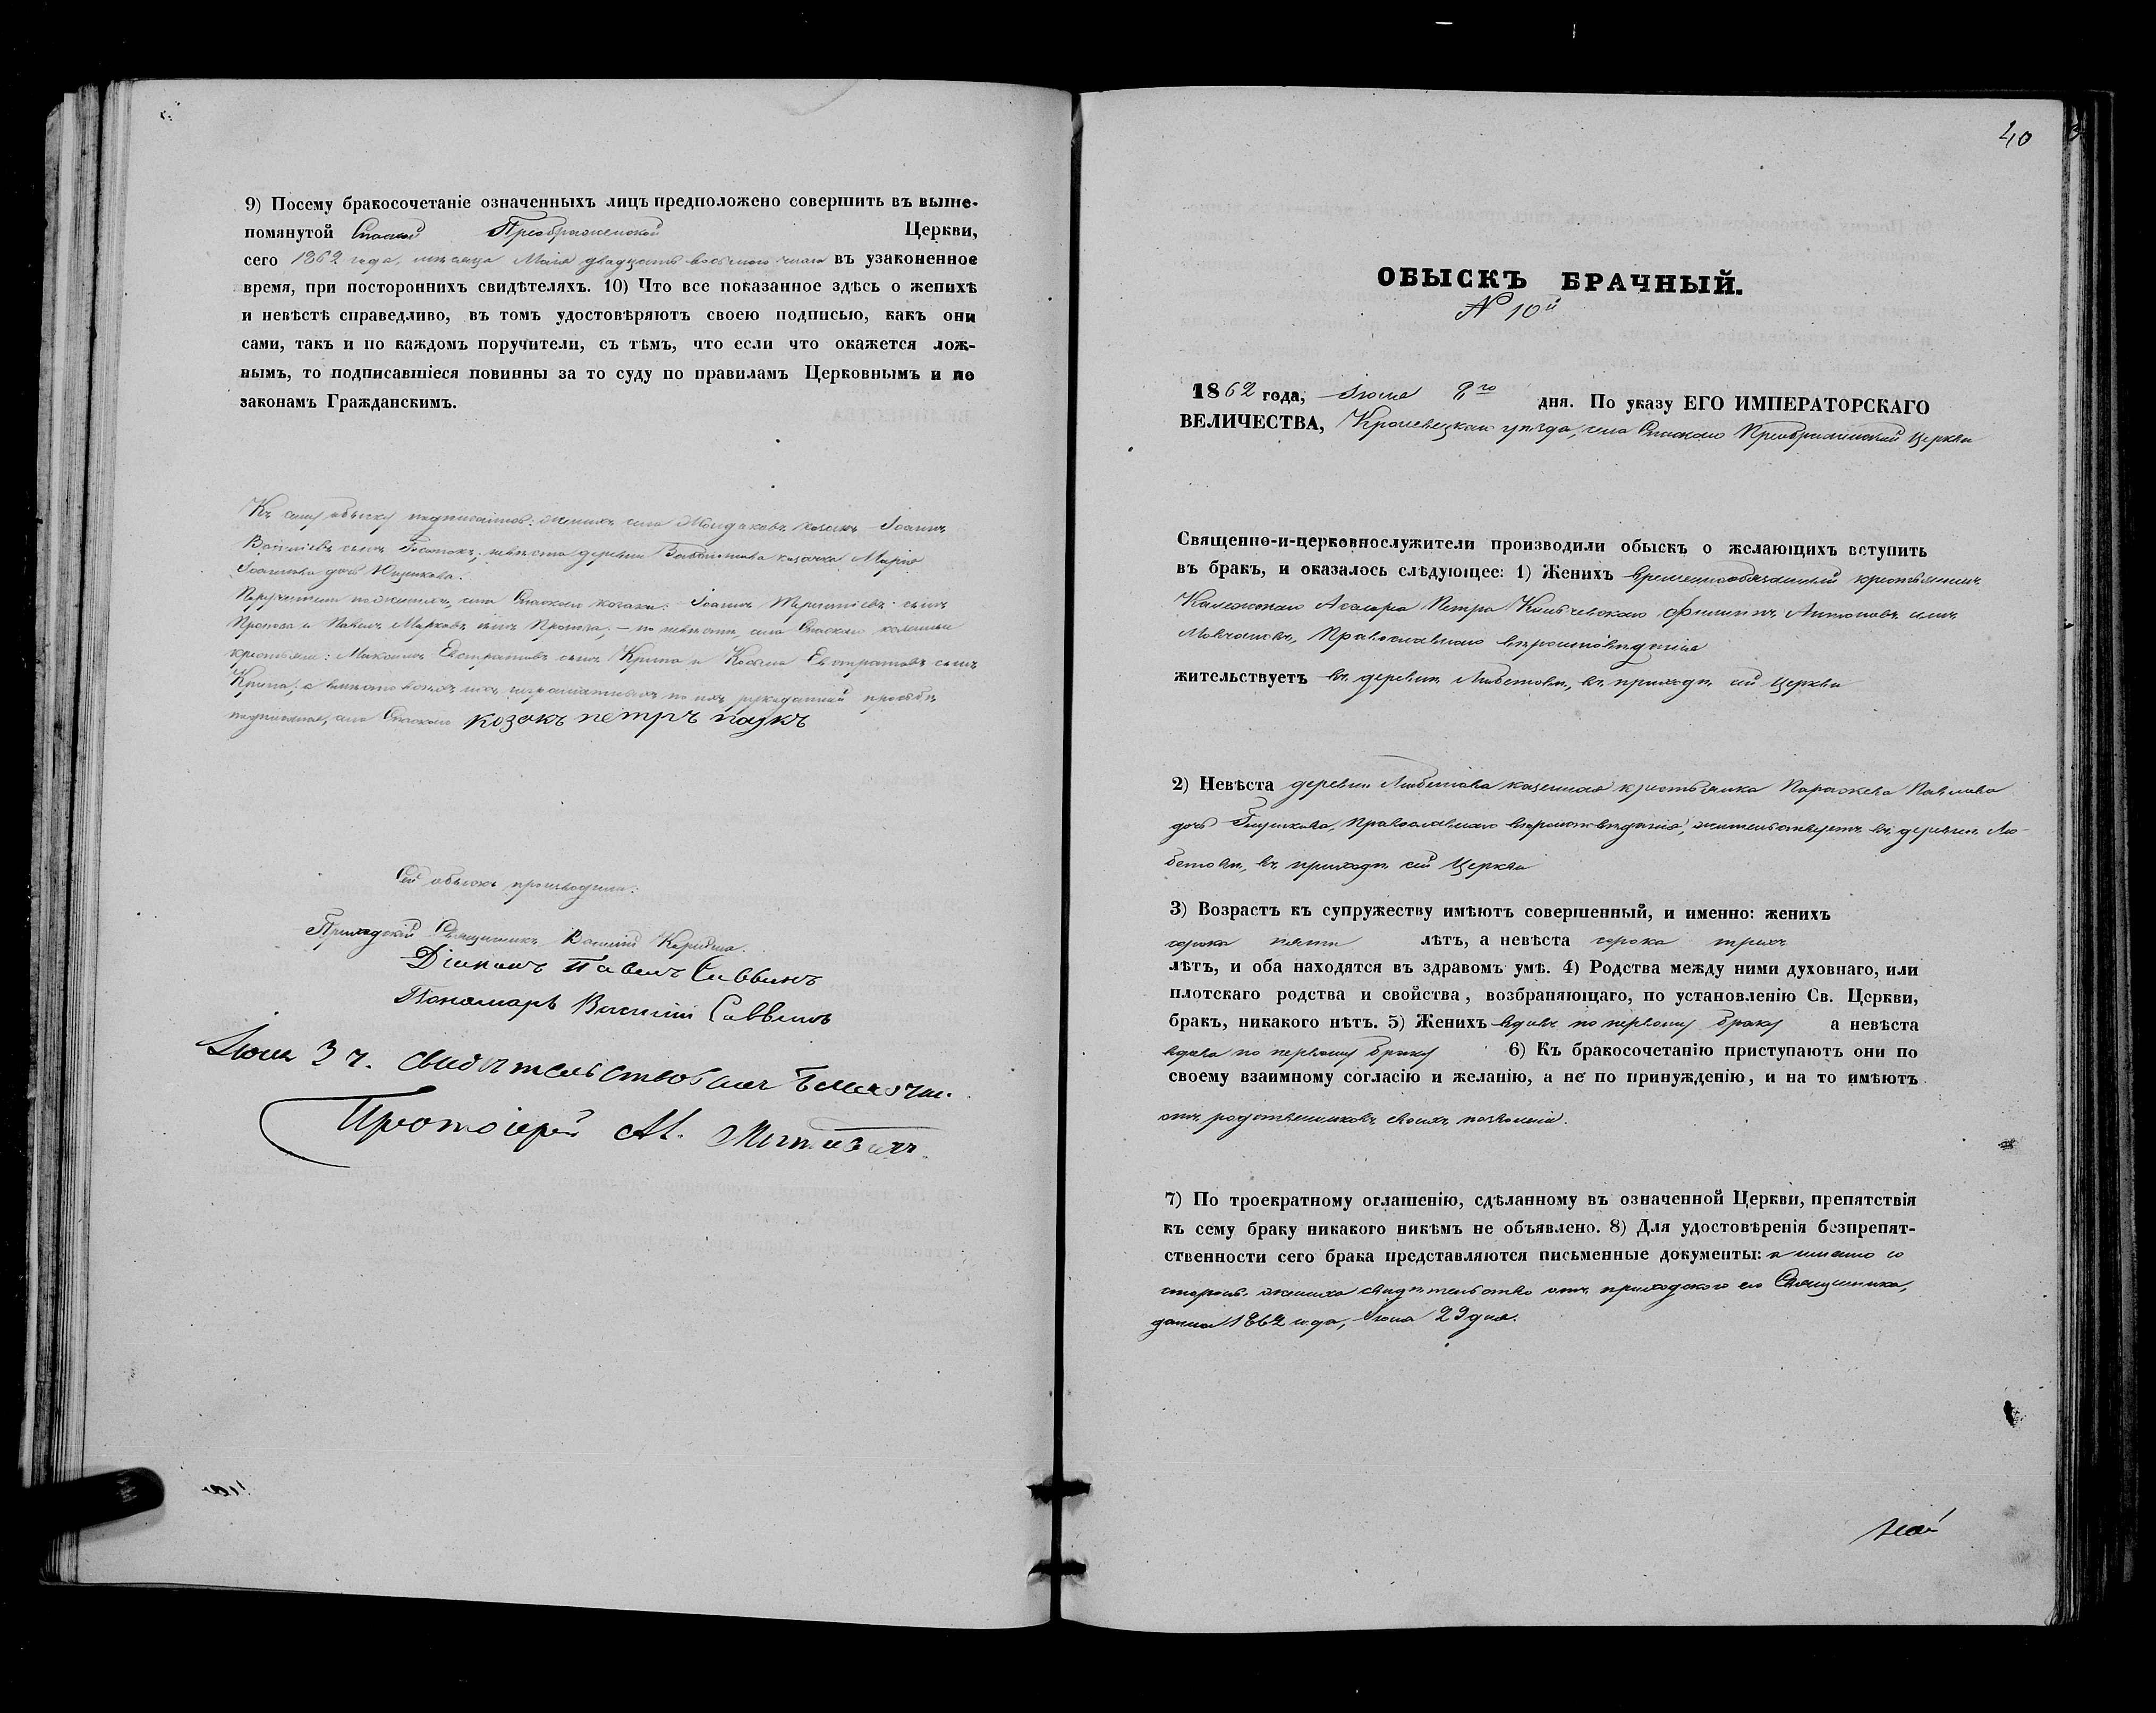 9) Посему бракосочетаніе означенныхъ лицъ предположено совершить въ выше-
помянутой Спаской Преображенской Церкви,
сего 1862 года, мѣсяца Маія двадцать восьмого числа въ узаконенное
время, при постороннихъ свидѣтеляхъ. 10) Что все показанное здѣсь о женихѣ
и невѣстѣ справедливо, въ томъ удостовѣряютъ своею подписью, какъ они
сами, такъ и по каждомъ поручители, съ тѣмъ, что если что окажется лож-
нымъ, то подписавшіеся повинны за то суду по правиламъ Церковнымъ и по
законамъ Гражданскимъ.
Къ сему обыску подписались: женихъ села козакъ Іоаннъ
сынъ невѣста деревни козачка Марія
Іоаннова дочь Ющенкова.
Поручители по женихѣ, села Спаского козаки: Іоаннъ сынъ
и Павелъ Марковъ сынъ – по невѣстѣ, села Спаского
крестьяне: Максимъ Евстратовъ сынъ и Косьма Евстратовъ сынъ
а вмѣсто всѣхъ ихъ неграмотныхъ по ихъ рукоданной просьбѣ
подписался, села Спаского козакъ петръ паукъ
Сей обыскъ производили:
Приходскій Священникъ Василій
Діаконъ Павелъ Саввинъ
Пономарь Василій Саввинъ
Іюня 3 ч. свидѣтельствовалъ Благочин.
Протоіерей Ал.
40
ОБЫСКЪ БРАЧНЫЙ.
N 10й
1862 года, Іюля 2го дня. По указу ЕГО ИМПЕРАТОРСКАГО
ВЕЛИЧЕСТВА, Кролевецкаго уѣзда, села Спаского Преображенской Церкви
Священно-и-церковнослужители производили обыскъ о желающихъ вступить
въ бракъ, и оказалось слѣдующее: 1) Женихъ временнообязанный крестьянинъ
Петра Филиппъ Антоновъ сынъ
Мовчановъ, Православнаго вѣроисповѣданія
жительствуетъ въ деревни Любитовѣ, въ приходѣ сей Церкви
2) Невѣста деревни Любитова казенная крестьянка Параскева Павлова
дочь Православнаго вѣроисповѣданія, жительствуетъ въ деревнѣ Лю-
битовѣ, въ приходѣ сей Церкви
3) Возрастъ къ супружеству имѣютъ совершенный, и именно: женихъ
сорока пяти лѣтъ, а невѣста сорока трехъ
лѣтъ, и оба находятся въ здравомъ умѣ. 4) Родства между ними духовнаго, или
плотскаго родства и свойства, возбраняющаго, по установленію Св. Церкви,
бракъ, никакого нѣтъ. 5) Женихъ вдовъ по первому браку а невѣста
вдова по первому браку 6) Къ бракосочетанію приступаютъ они по
своему взаимному согласію и желанію, а не по принужденію, и на то имѣютъ
отъ родственниковъ своихъ позволеніе.
7) По троекратному оглашенію, сдѣланному въ означенной Церкви, препятствія
къ сему браку никакого никѣмъ не объявлено. 8) Для удостовѣренія безпрепят-
ственности сего брака представляются письменные документы: а именно со
стороны жениха свидѣтельство отъ приходского его Священника,
данное 1862 года, Іюня 29 дня.